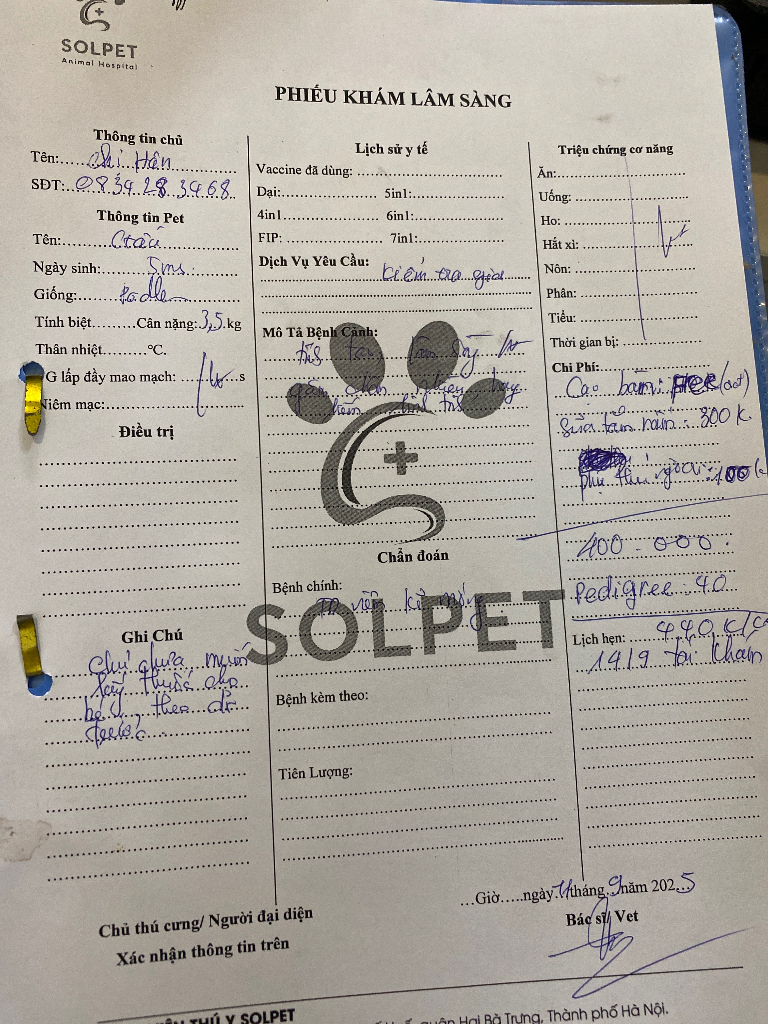 SOLPET
Animal Hospital
PHIẾU KHÁM LÂM SÀNG
Thông tin chủ
Tên: chị Hân
SĐT: 0834283468
Thông tin Pet
Tên:
Ngày sinh: 5ms
Giống: Podle
Tính biệt Cân nặng: 3,5 kg
Thân nhiệt °C.
G lấp đầy mao mạch: s
Niêm mạc:
Điều trị
Ghi Chú
chủ chưa muốn
lấy thuốc cho
bé, theo dõi
Lịch sử y tế
Vaccine đã dùng:
Dại: 5in1:
4in1 6in1:
FIP: 7in1:
Dịch Vụ Yêu Cầu:
kiểm tra
Mô Tả Bệnh Cảnh:
gặm chân nhiều hay
liếm
SOLPET
Chẩn đoán
Bệnh chính:
viêm kẽ móng
Bệnh kèm theo:
Tiên Lượng:
Triệu chứng cơ năng
Ăn:
Uống:
Ho:
Hắt xì:
Nôn:
Phân:
Tiểu:
Thời gian bị:
Chi Phí:
Cạo bàn: FREE
Sữa tắm nấm: 300k
phụ thu : 100k
400.000
Pedigree: 40
440k
Lịch hẹn:
14/9 tái khám
Giờ ngày 11 tháng 9 năm 2025
Bác sĩ/ Vet
Chủ thú cưng/ Người đại diện
Xác nhận thông tin trên
THÚ Y SOLPET
quận Hai Bà Trưng, Thành phố Hà Nội.